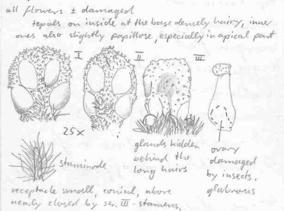 all flowers ± damaged
tepals on inside at the base densely hairy, inner
ones also slightly papillose, especially in apical part
I
II
III
25x
staminode
glands hidden
behind the
long hairs
ovary
damaged
by insects,
glabrous
receptacle small, conical, above
nearly closed by ser. III - stamens,